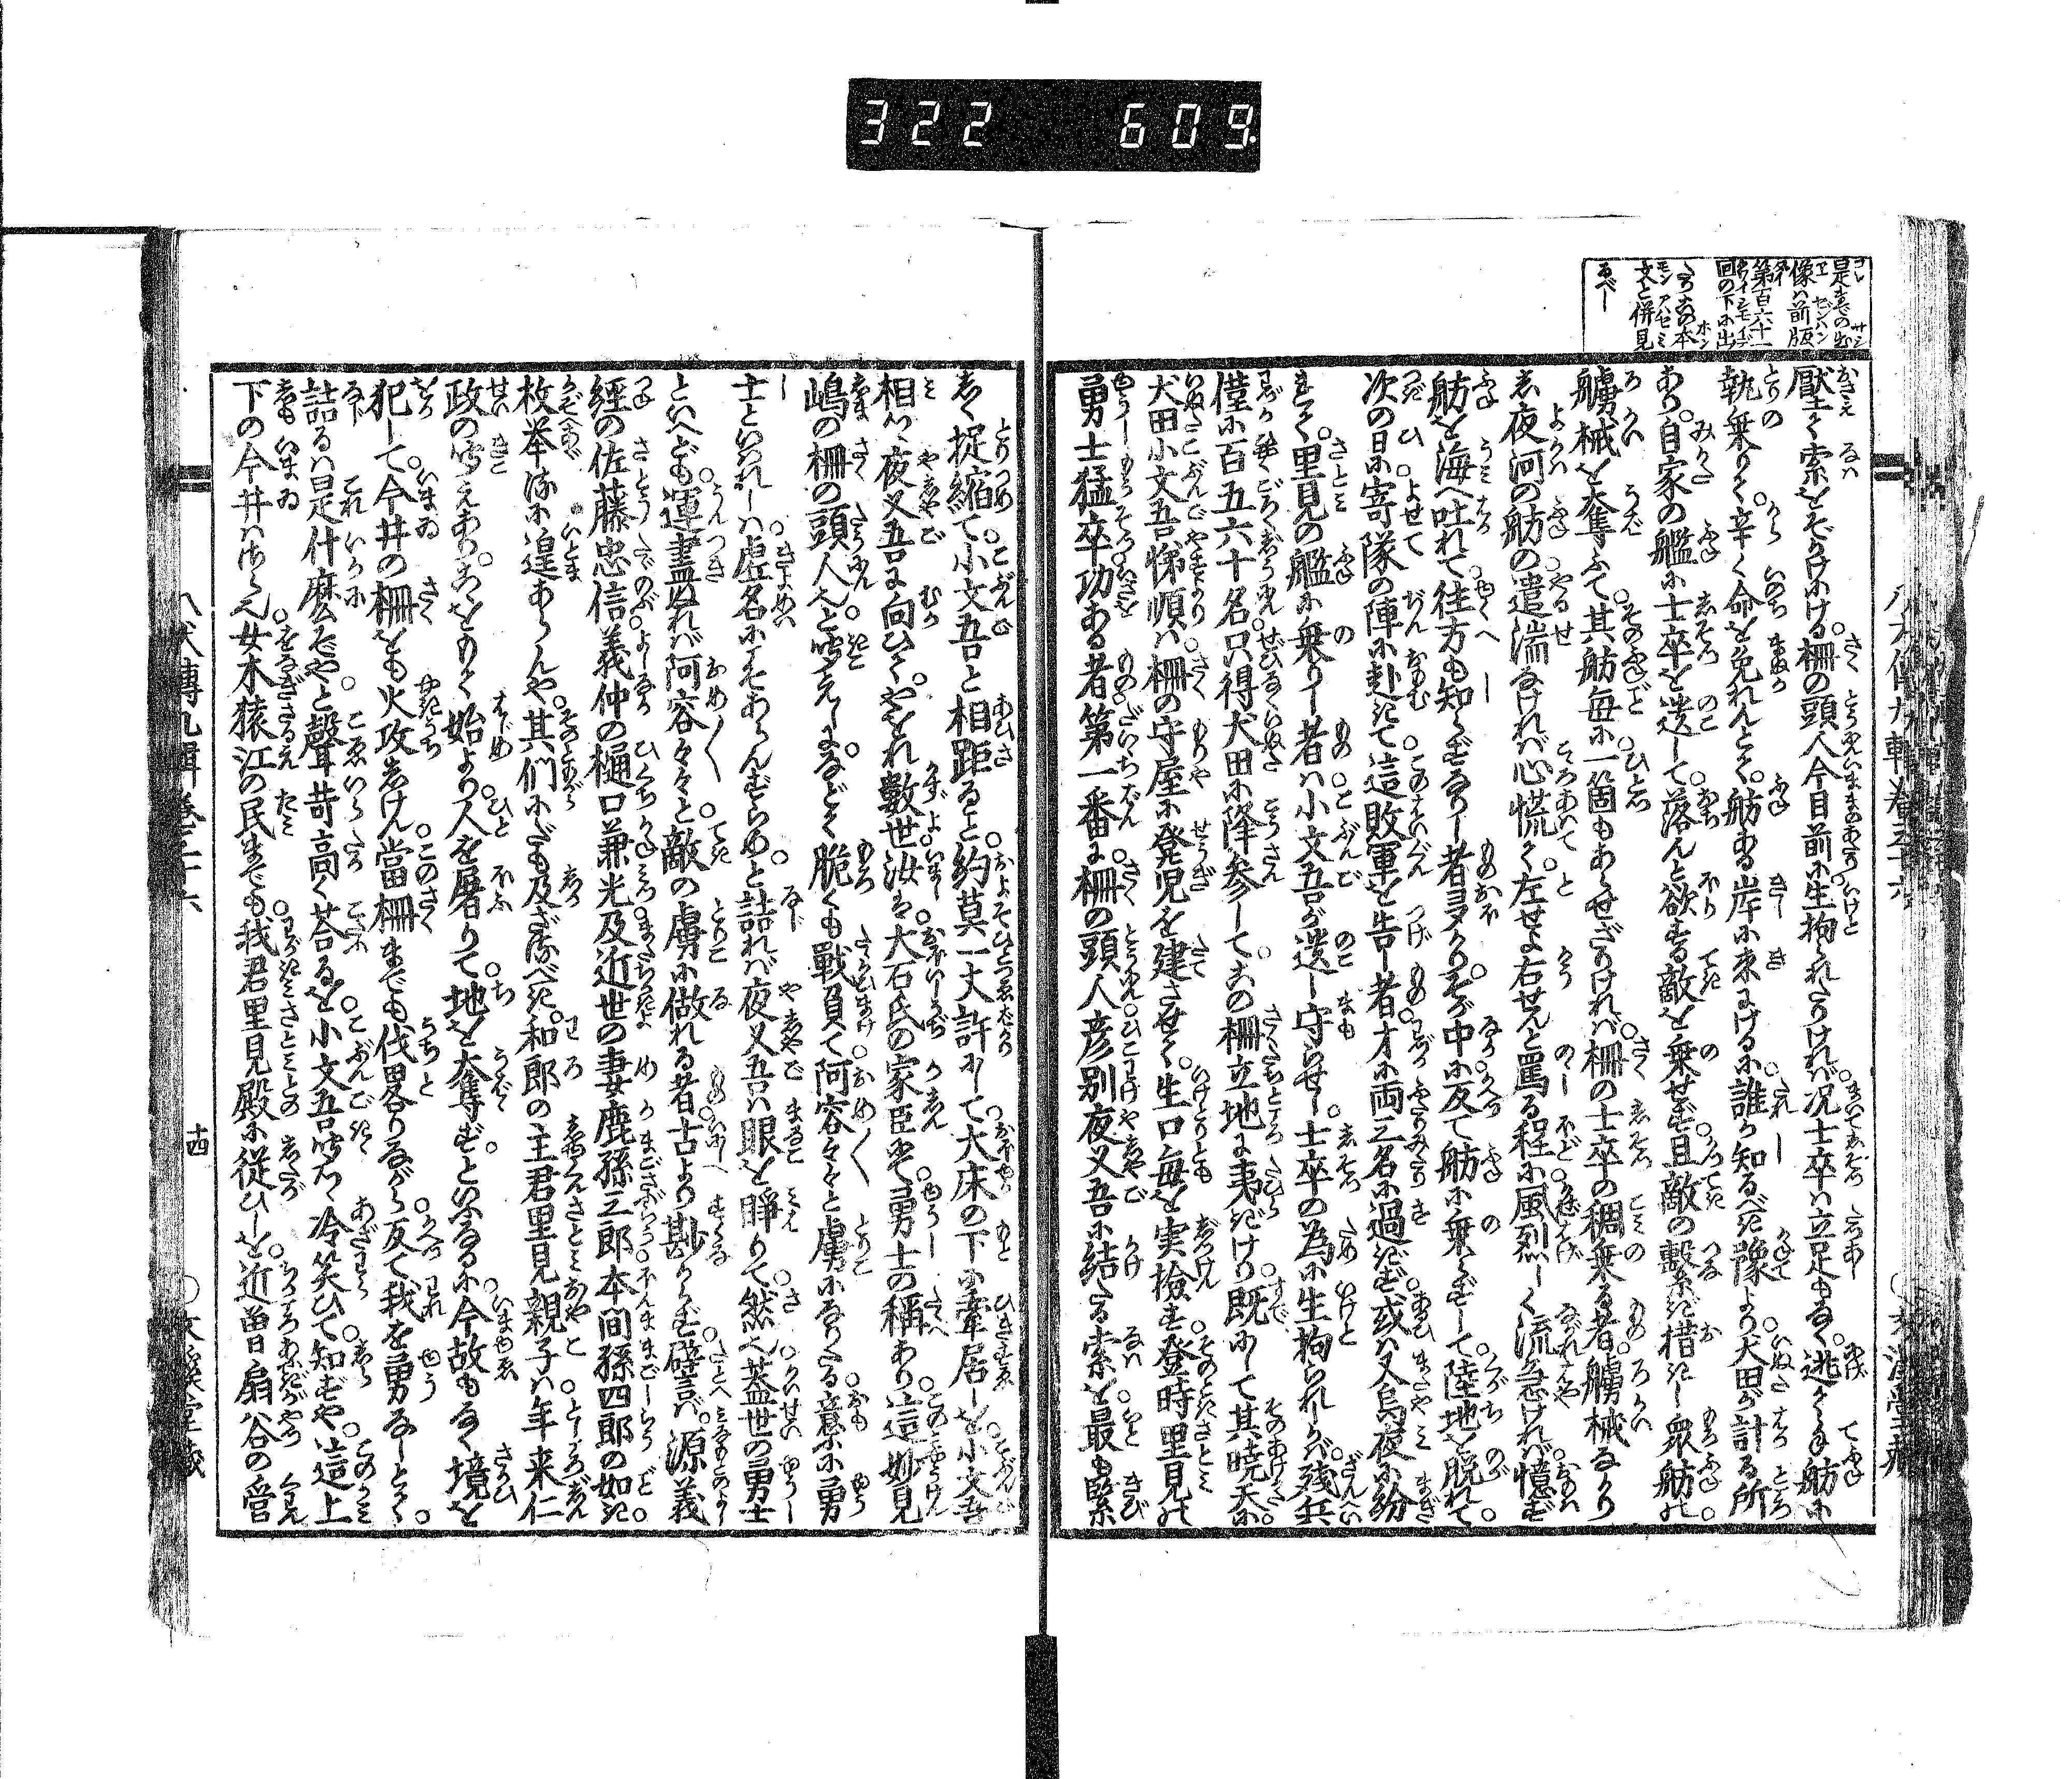 322 609
是までの出
像は前版
第百六十一
回の下に出
たり本
文と併見
るべし
壓て索をぞかけにける。柵の頭人今目前に生拘られたりければ。况士卒は立足もなく。逃て舫に
執乗りて。辛く命を免れんとて。舫ある岸に来にけるに。誰か知るべき豫より。犬田が計る所
あり。自家の艦に士卒を遺して。落んと欲する敵を乗せず。且敵の繋ぎ措きし衆舫の。
艣械を大奪ふて。其舫毎に一箇もあらせざりければ。柵の士卒の稠乗る者。艣械なかり
し。夜河の舫の。遣湍なければ。心慌て。と左せよ右せんと罵る程に。風烈しく流急ければ。憶ず
舫を海へ吐れて。往方も知らずなりし者多かり。其が中に反て舫に乗らずして。陸地を脱れて。
次の日に寄隊の陣に赴きて。這敗軍を告し者。才に両三名に過ぎず。或は又烏夜に紛
れて。里見の艦に乗りし者は。小文吾が遺し守らせし。士卒の為に生拘られしかば。残兵
僅に百五六十名。只得犬田に降参して。この柵立地に夷ぎけり。既にして其暁天に。
犬田小文吾悌順は。柵の守屋に登児を建させて。生口毎を実檢す。登時里見の
勇士猛卒。功ある者。第一番に柵の頭人。彦別夜叉吾に結たる索を。最も緊
しく捉縮て。小文吾と相距ること。約莫一丈許にして。大床の下に牽居しを。小文吾
相つゝ夜叉吾に向ひて。やをれ数世。汝は大石氏の家臣にて。勇士の称あり。這妙見
嶋の柵の頭人と。聞えしになどて脆くも戦負て。阿容々々と虜になりたる。意ふに勇
士といはれしは。虚名にこそあらんずらめ。と詰れば夜叉吾は眼を睜りて。然也。蓋世の勇士
といへども。運盡ぬれば阿容々々と。敵の虜に做れる者。古より尠からず。譬ば。源義
經の佐藤忠信。義仲の樋口兼光。及近世の妻鹿孫三郎。本間孫四郎の如き。
枚挙るに遑あらんや。其們にだも及ざるべき。和郎の主君里見親子は。年来仁
政の聞えあり。こゝをもて始より。人を屠りて。地を大奪ずといふなるに。今故もなく境を
犯して。今井の柵をも火攻しけん。當柵までも伐畧りながら。反て我を勇なしとて。
詰るは是什麼ぞや。と聲苛高く荅るを。小文吾聞つゝ冷笑ひて。知ずや。這上
下の今井はさらん。女木猿江の民までも。我君里見殿に従ひしを。近曽扇谷の管
八犬傳九輯巻三十六
十四
○文溪堂藏